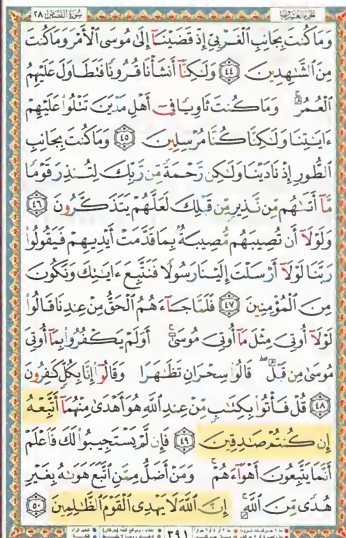 سُورَةُ القَصَصِ ٢٨
الجُزءُ العِشرُونَ
وَمَا كُنتَ بِجَانِبِ ٱلْغَرْبِيِّ إِذْ قَضَيْنَآ إِلَىٰ مُوسَى ٱلْأَمْرَ وَمَا كُنتَ
مِنَ ٱلشَّٰهِدِينَ ٤٤ وَلَٰكِنَّآ أَنشَأْنَا قُرُونًا فَتَطَاوَلَ عَلَيْهِمُ
ٱلْعُمُرُ ۚ وَمَا كُنتَ ثَاوِيًا فِىٓ أَهْلِ مَدْيَنَ تَتْلُوا۟ عَلَيْهِمْ
ءَايَٰتِنَا وَلَٰكِنَّا كُنَّا مُرْسِلِينَ ٤٥ وَمَا كُنتَ بِجَانِبِ
ٱلطُّورِ إِذْ نَادَيْنَا وَلَٰكِن رَّحْمَةً مِّن رَّبِّكَ لِتُنذِرَ قَوْمًا
مَّآ أَتَىٰهُم مِّن نَّذِيرٍ مِّن قَبْلِكَ لَعَلَّهُمْ يَتَذَكَّرُونَ ٤٦
وَلَوْلَآ أَن تُصِيبَهُم مُّصِيبَةٌۢ بِمَا قَدَّمَتْ أَيْدِيهِمْ فَيَقُولُوا۟
رَبَّنَا لَوْلَآ أَرْسَلْتَ إِلَيْنَا رَسُولًا فَنَتَّبِعَ ءَايَٰتِكَ وَنَكُونَ
مِنَ ٱلْمُؤْمِنِينَ ٤٧ فَلَمَّا جَآءَهُمُ ٱلْحَقُّ مِنْ عِندِنَا قَالُوا۟
لَوْلَآ أُوتِىَ مِثْلَ مَآ أُوتِىَ مُوسَىٰٓ ۚ أَوَلَمْ يَكْفُرُوا۟ بِمَآ أُوتِىَ
مُوسَىٰ مِن قَبْلُ ۖ قَالُوا۟ سِحْرَانِ تَظَٰهَرَا وَقَالُوٓا۟ إِنَّا بِكُلٍّ كَٰفِرُونَ
٤٨ قُلْ فَأْتُوا۟ بِكِتَٰبٍ مِّنْ عِندِ ٱللَّهِ هُوَ أَهْدَىٰ مِنْهُمَآ أَتَّبِعْهُ
إِن كُنتُمْ صَٰدِقِينَ ٤٩ فَإِن لَّمْ يَسْتَجِيبُوا۟ لَكَ فَٱعْلَمْ
أَنَّمَا يَتَّبِعُونَ أَهْوَآءَهُمْ ۚ وَمَنْ أَضَلُّ مِمَّنِ ٱتَّبَعَ هَوَىٰهُ بِغَيْرِ
هُدًى مِّنَ ٱللَّهِ ۚ إِنَّ ٱللَّهَ لَا يَهْدِى ٱلْقَوْمَ ٱلظَّٰلِمِينَ ٥٠
٣٩١